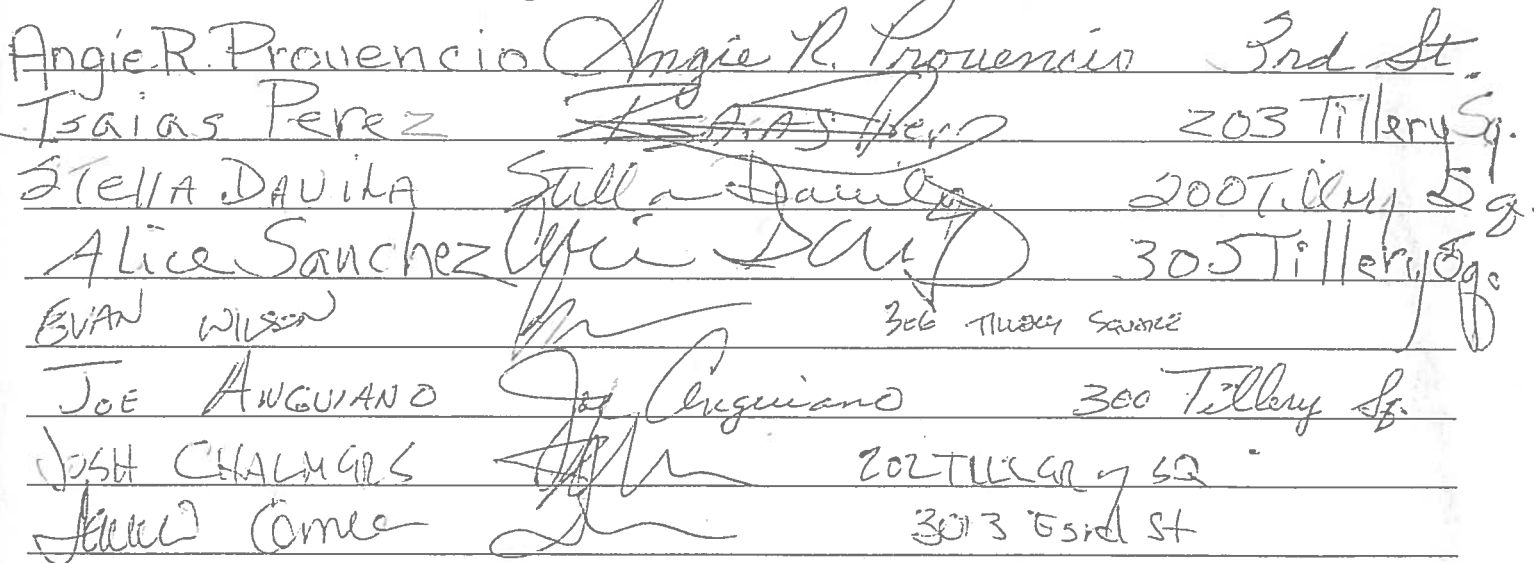 Angie R. Provencio Angie R. Provencio 3rd St.
Isaias Perez Isaias Perez 203 Tillery Sq.
Stella Davila Stella Davila 200 Tillery Sq.
Alice Sanchez 305 Tillery Sq.
Evan Wilson 306 Tillery Square
Joe Anguiano Joe Anguiano 300 Tillery Sq.
Josh Chalmers 202 Tillery SQ
3013 E 3rd St